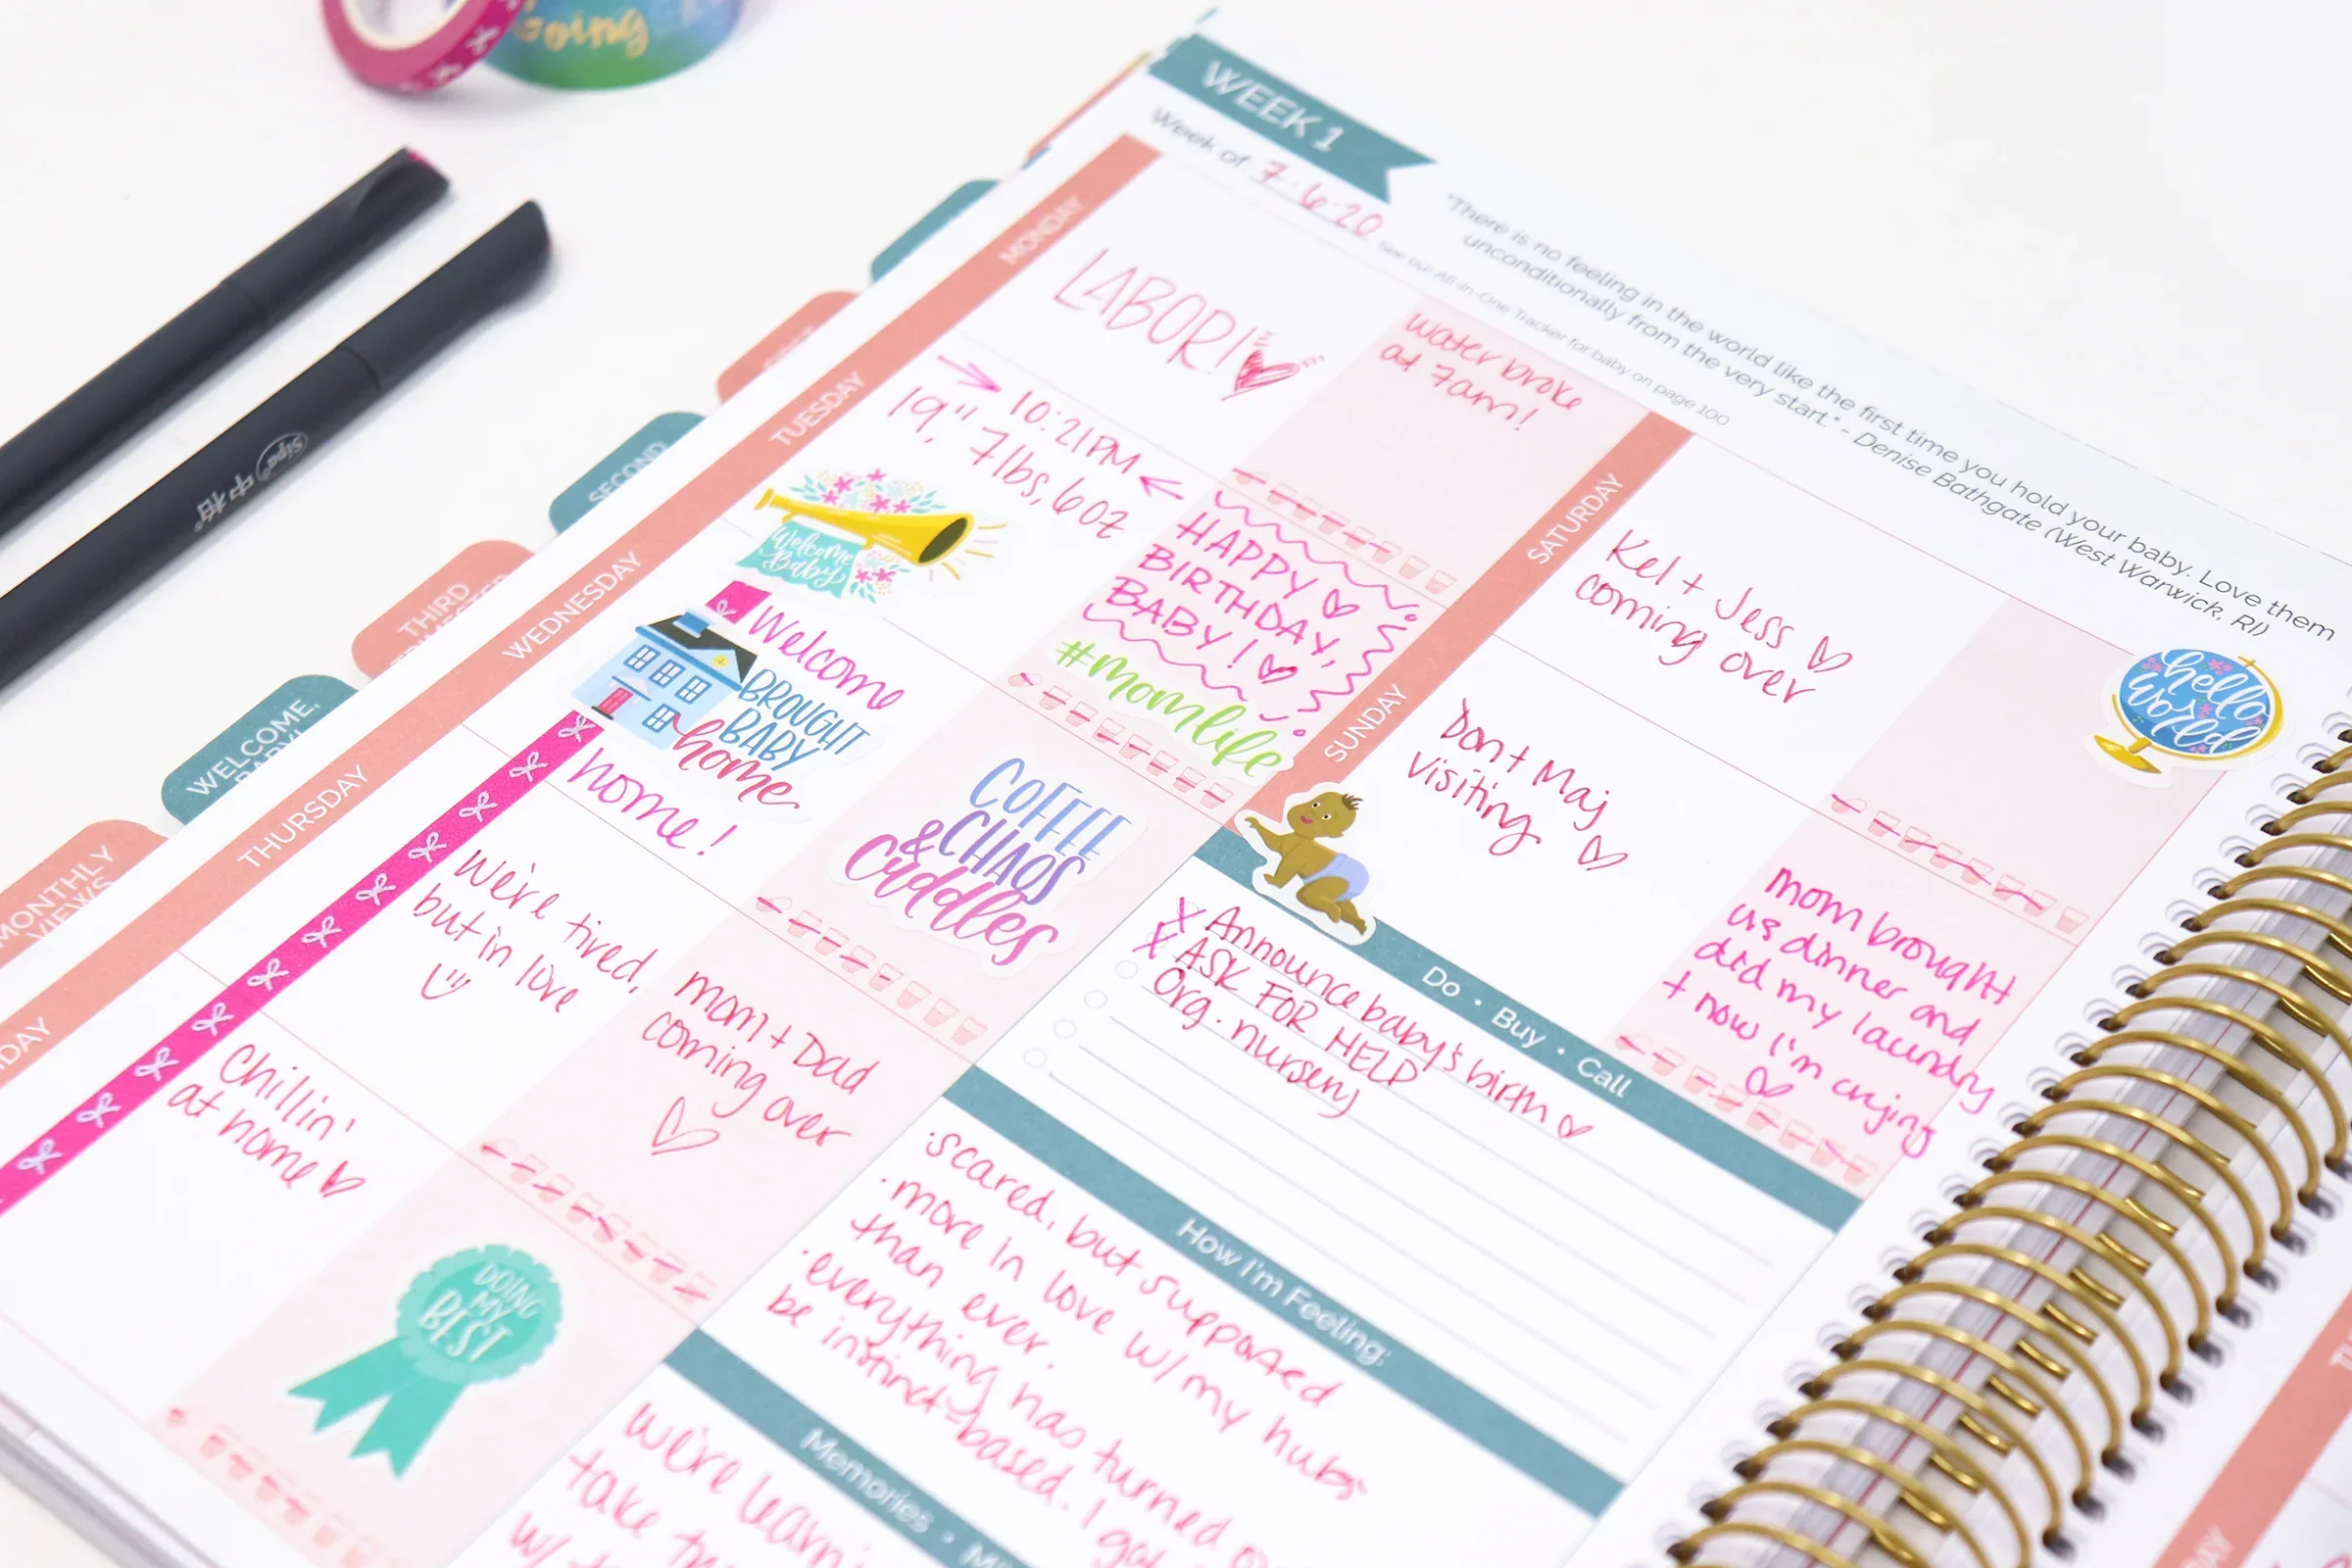 Going
Sipa
中柏
WEEK 1
Week of 7.6.20
See our All-In-One Tracker for baby on page 100
"There is no feeling in the world like the first time you hold your baby. Love them
unconditionally from the very start." - Denise Bathgate (West Warwick, RI)
MONDAY
LABOR!
water broke
at 7am!
TUESDAY
10:21PM
19", 7lbs, 6oz
Welcome
Baby
HAPPY
BIRTHDAY,
BABY!
#momlife
WEDNESDAY
Welcome
BROUGHT
BABY
home
home!
COFFEE
& CHAOS
Cuddles
THURSDAY
We're tired,
but in love
mom + Dad
coming over
DAY
Chillin'
at home
DOING
MY
BEST
SATURDAY
Kel + Jess
coming over
hello
world
SUNDAY
Don + Maj
visiting
mom brought
us dinner and
did my laundry
+ now I'm crying
Do • Buy • Call
X Announce baby's birth
X ASK FOR HELP
Org. nursery
How I'm Feeling:
·scared, but supported
·more in love w/ my hubs
than ever.
·everything has turned
be instinct-based. I
Memories •
we're
take
w/
SECOND
THIRD
WELCOME,
BABY!
MONTHLY
VIEWS